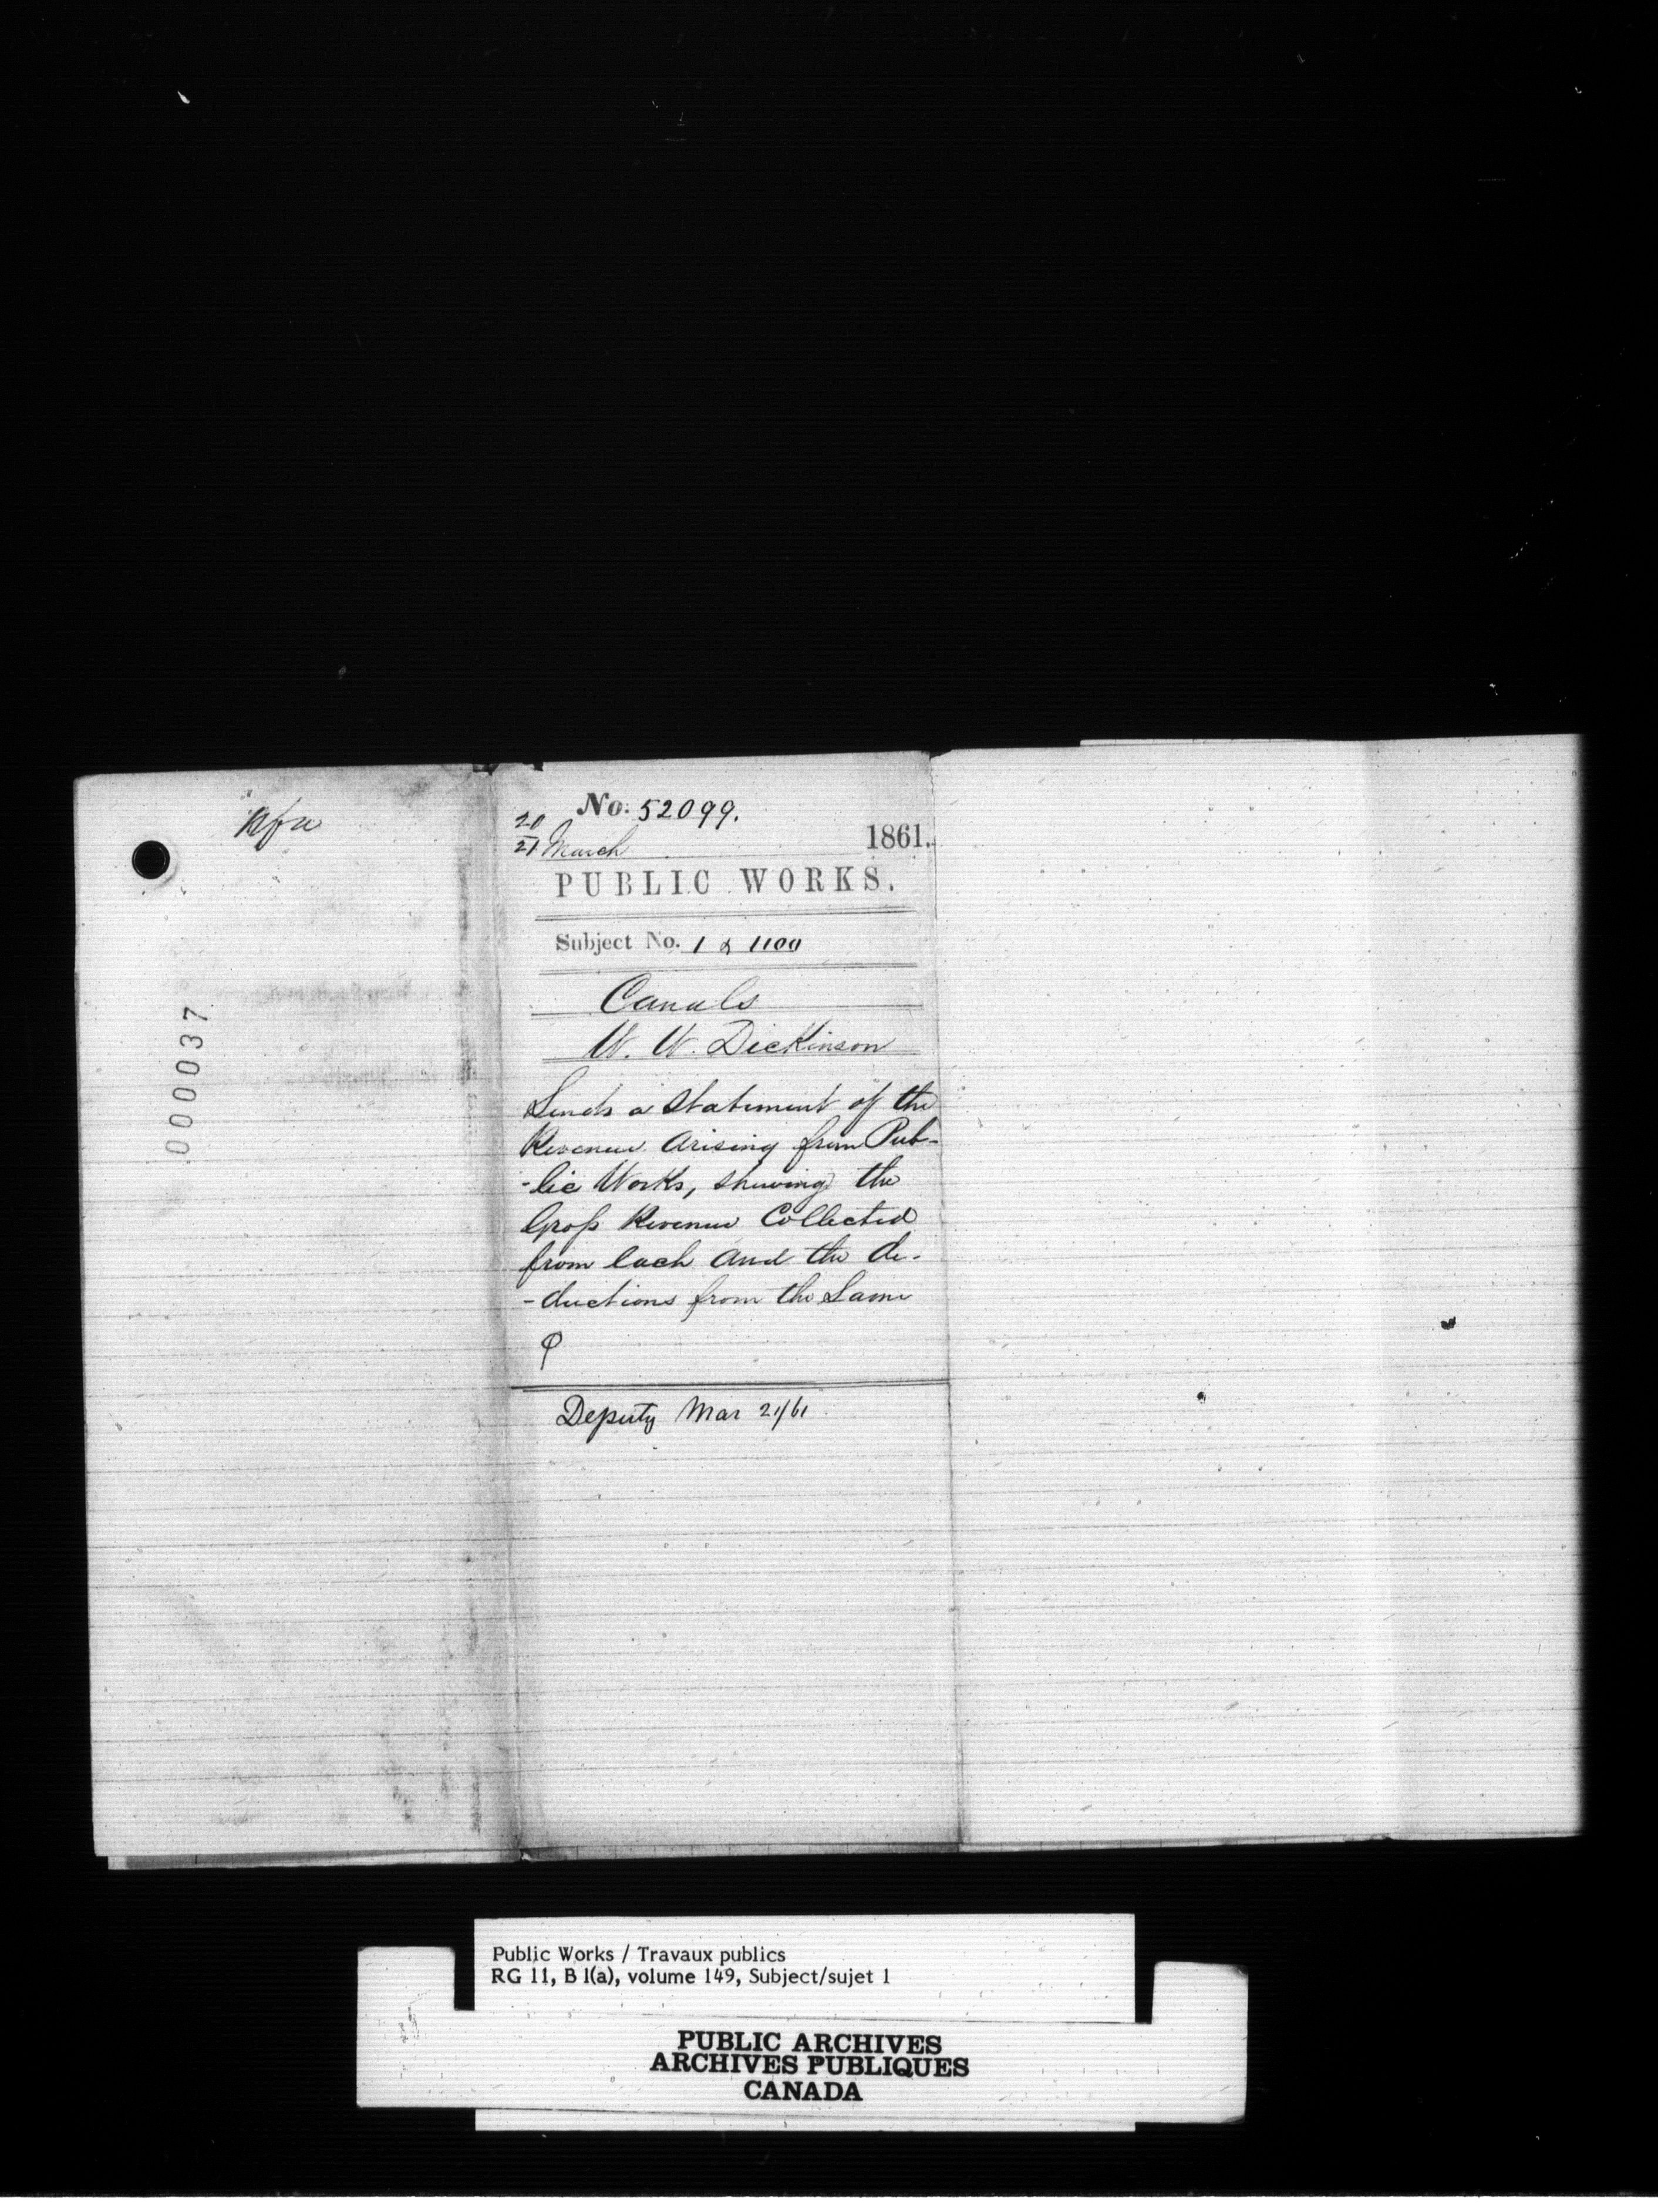 No. 52099.
20
21 March 1861.
PUBLIC WORKS.
Subject No. 1 & 1100
Canals
W. W. Dickinson
Sends a Statement of the
Revenue Arising from Pub-
-lic Works, shewing the
Gross Revenue Collected
from each and the de-
-ductions from the Same
Deputy Mar 21/61
000037
Public Works / Travaux publics
RG 11, B 1(a), volume 149, Subject/sujet 1
PUBLIC ARCHIVES
ARCHIVES PUBLIQUES
CANADA